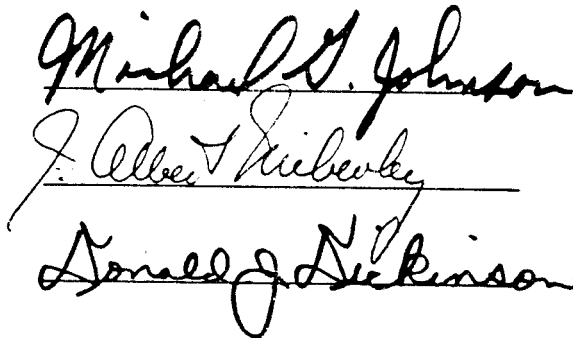 Michael G. Johnson
J. Albert
Donald J. Dickinson